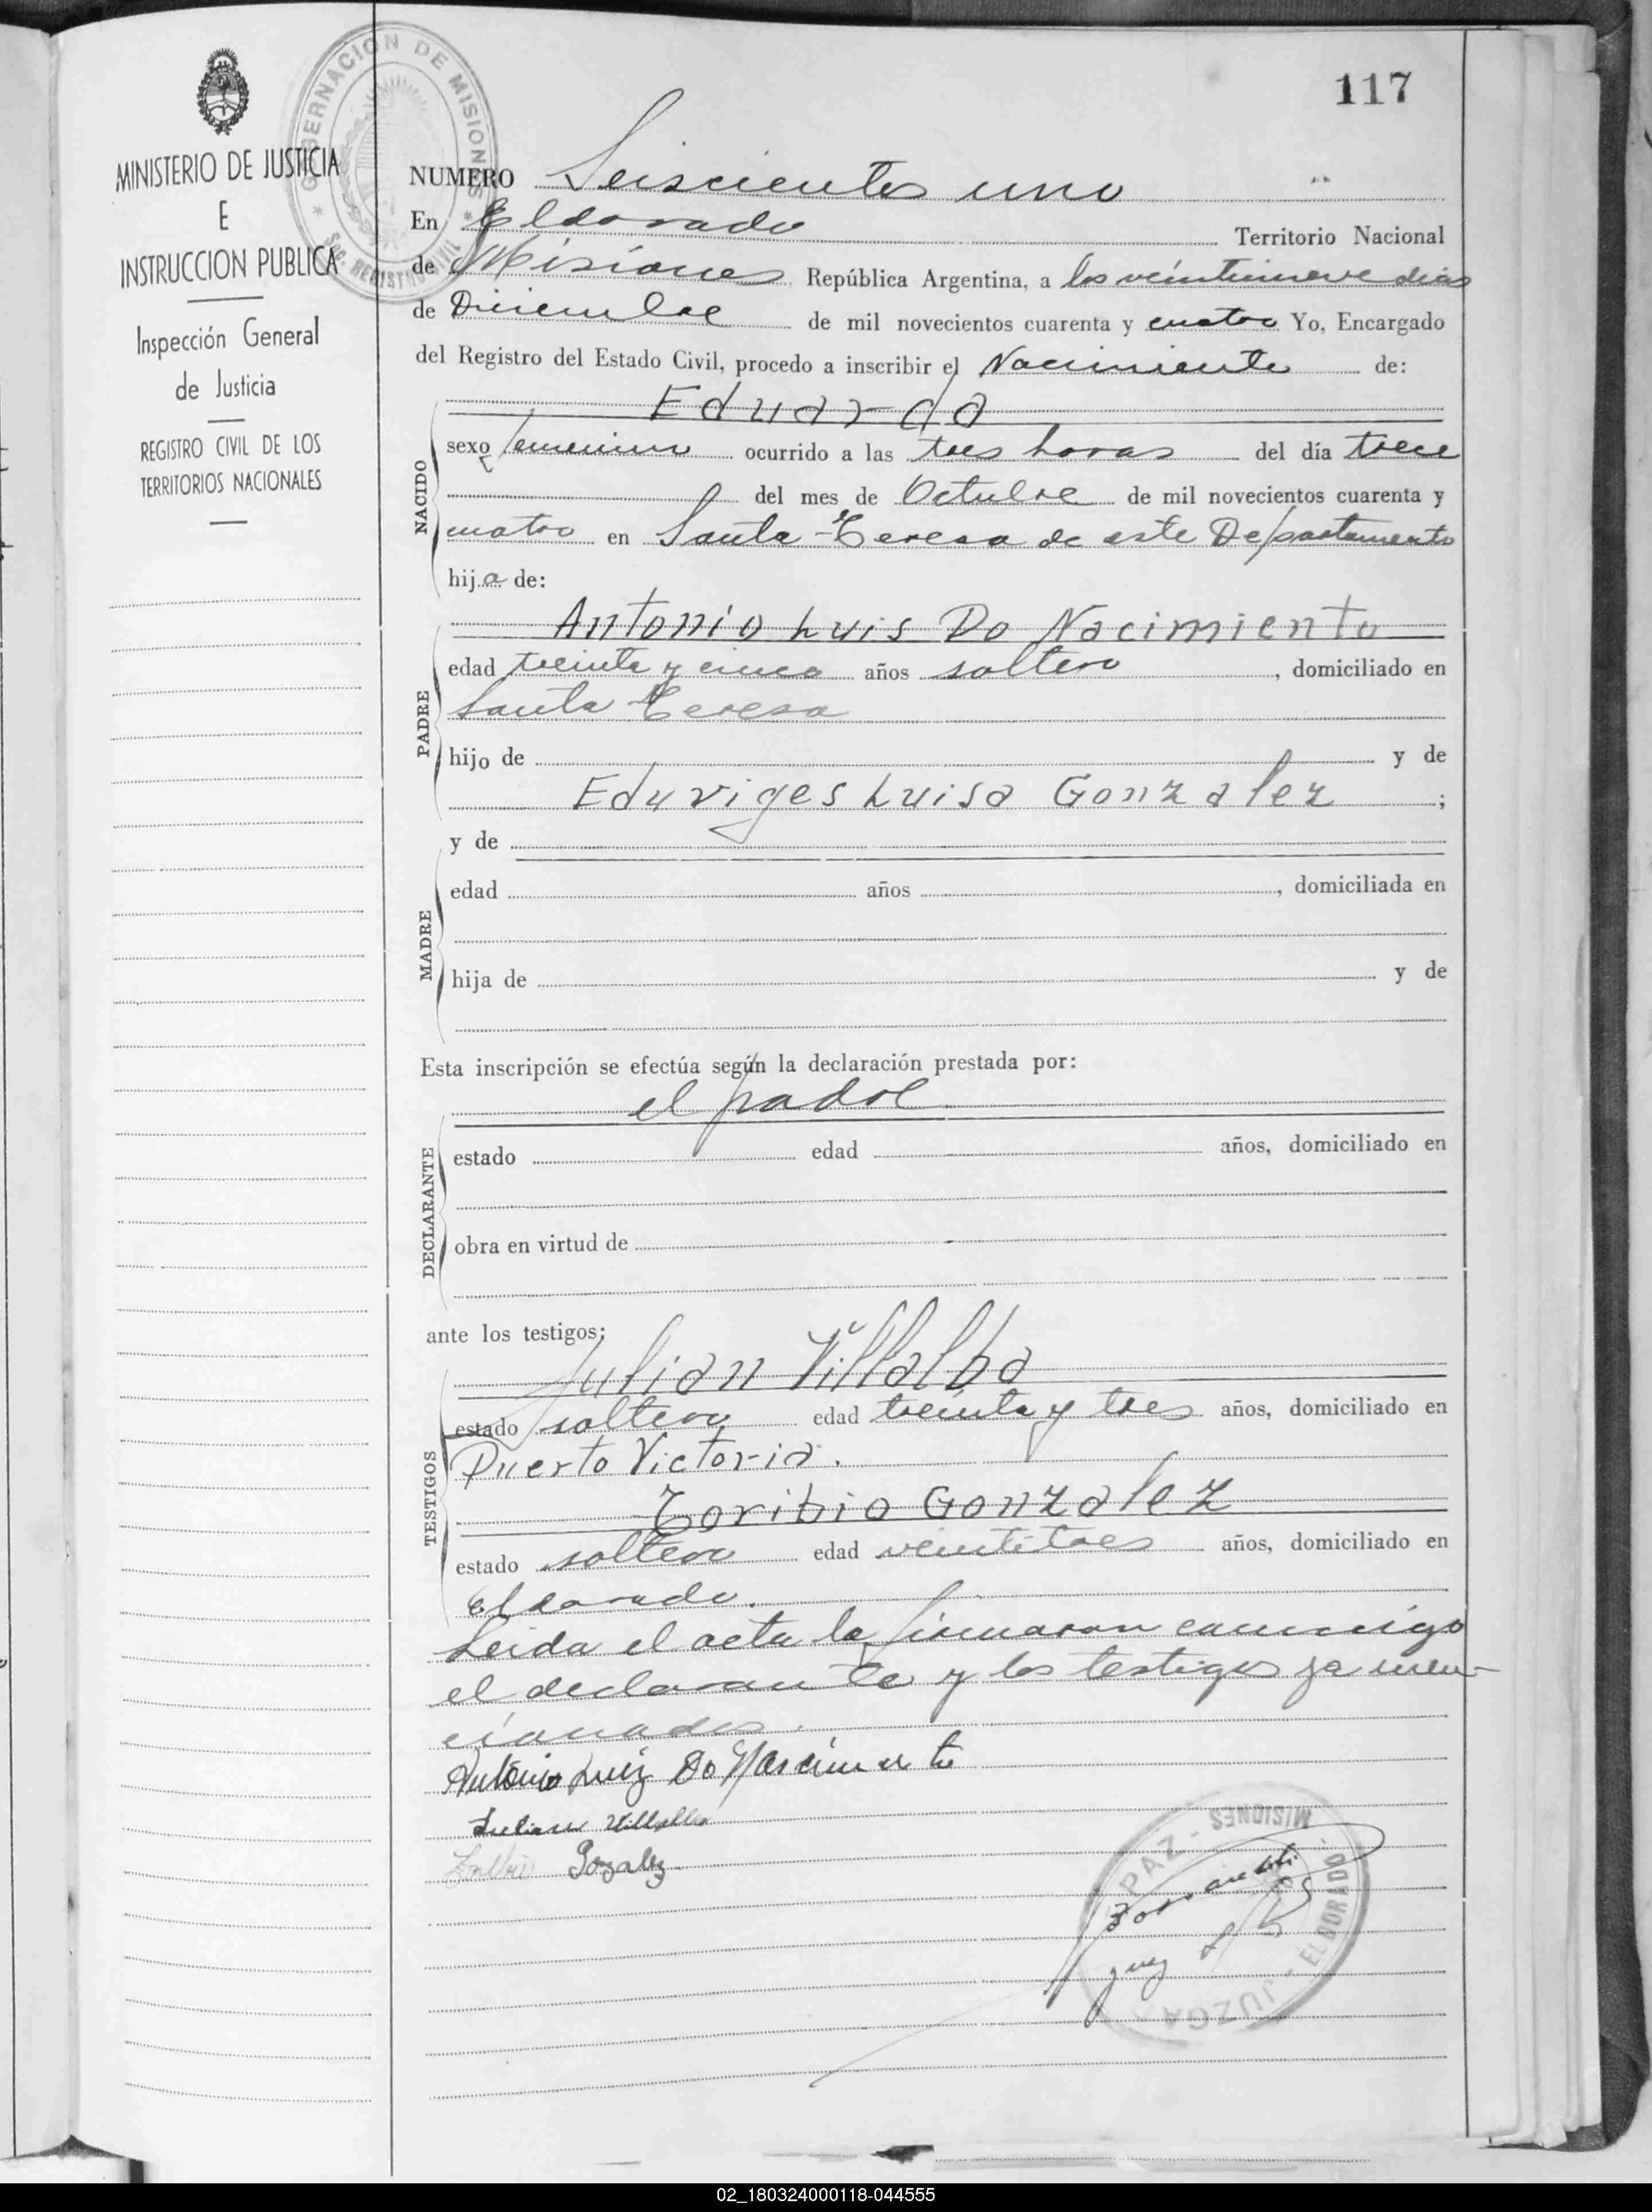 117
GOBERNACION DE MISIONES
SEC. REGISTRO CIVIL
MINISTERIO DE JUSTICIA
E
INSTRUCCION PUBLICA
Inspección General
de Justicia
REGISTRO CIVIL DE LOS
TERRITORIOS NACIONALES
NUMERO Seiscientos uno
En Eldorado Territorio Nacional
de Misiones República Argentina, a los veintinueve dias
de Diciembre de mil novecientos cuarenta y cuatro Yo, Encargado
del Registro del Estado Civil, procedo a inscribir el Nacimiento de:
Eduarda
NACIDO
sexo femenino ocurrido a las tres horas del día trece
del mes de Octubre de mil novecientos cuarenta y
cuatro en Santa Teresa de este Departamento
hija de:
Antonio Luis Do Nacimiento
PADRE
edad treinta y cinco años soltero, domiciliado en
Santa Teresa
hijo de y de
Eduviges Luisa Gonzalez ;
y de
MADRE
edad años , domiciliada en
hija de y de
Esta inscripción se efectúa según la declaración prestada por:
el padre
DECLARANTE
estado edad años, domiciliado en
obra en virtud de
ante los testigos:
Julian Villalba
TESTIGOS
estado soltero edad treinta y tres años, domiciliado en
Puerto Victoria.
Toribio Gonzalez
estado soltero edad veintitres años, domiciliado en
Eldorado.
Leida el acta la firmaron conmigo
el declarante y los testigos ya men-
cionados.
Antonio Luiz Do Nascimento
Julian Villalba
Gozalez
PAZ - MISIONES
JUZGA - ELDORADO -
juez
02_180324000118-044555